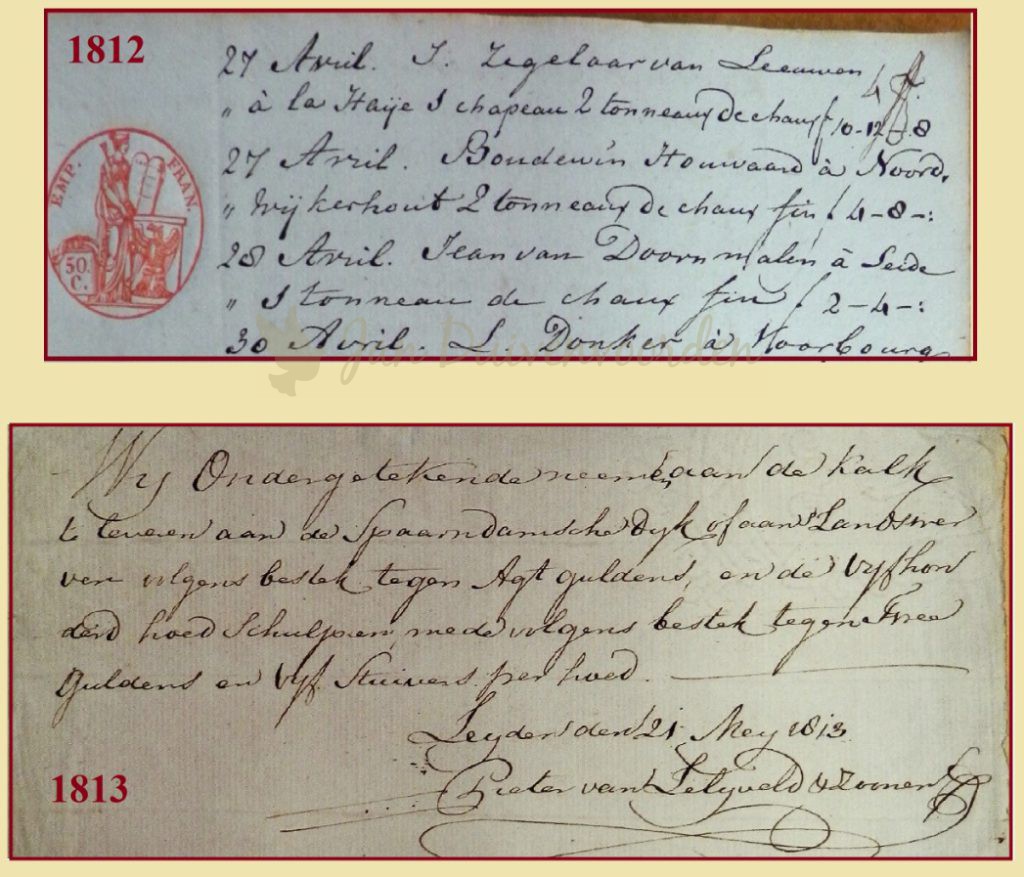 1812
27 Avril. J. Zegelaar van Leeuwen
„ à la Haÿe 1 chapeau 2 tonneaux de chaux f 10-12-8
27 Avril. Boudewin Houwaard à Noord,
„ wijkerhout 2 tonneaux de chaux fin f 4-8-:
28 Avril. Jean van Doorn malen à Leide
„ 1 tonneau de chaux fin f 2-4-:
30 Avril. L. Donker à Voorbourg
EMP. FRAN.
50.
C.
Jan Duivenvoorden
Wy Ondergetekende neemen aan de Kalk
te leveren aan de Spaarndamsche Dyk of aan 's Landswer
ven volgens bestek tegen Agt guldens, en de Vyfhon
derd hoed Schulpen, mede volgens bestek tegen Twee
Guldens en Vyf Stuivers per hoed.
Leyden den 21 Mey 1813
Pieter van Lelyveld & Zoonen
1813